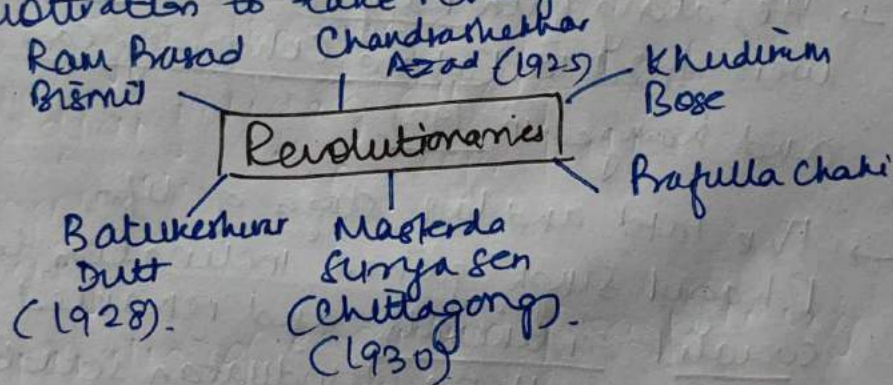 to
Ram Prasad
Bismil
Chandrashekhar
Azad (1925)
Khudiram
Bose
Revolutionaries
Prafulla Chaki
Batukeshwar
Dutt
(1928).
Masterda
Surya Sen
(Chittagong).
(1930)